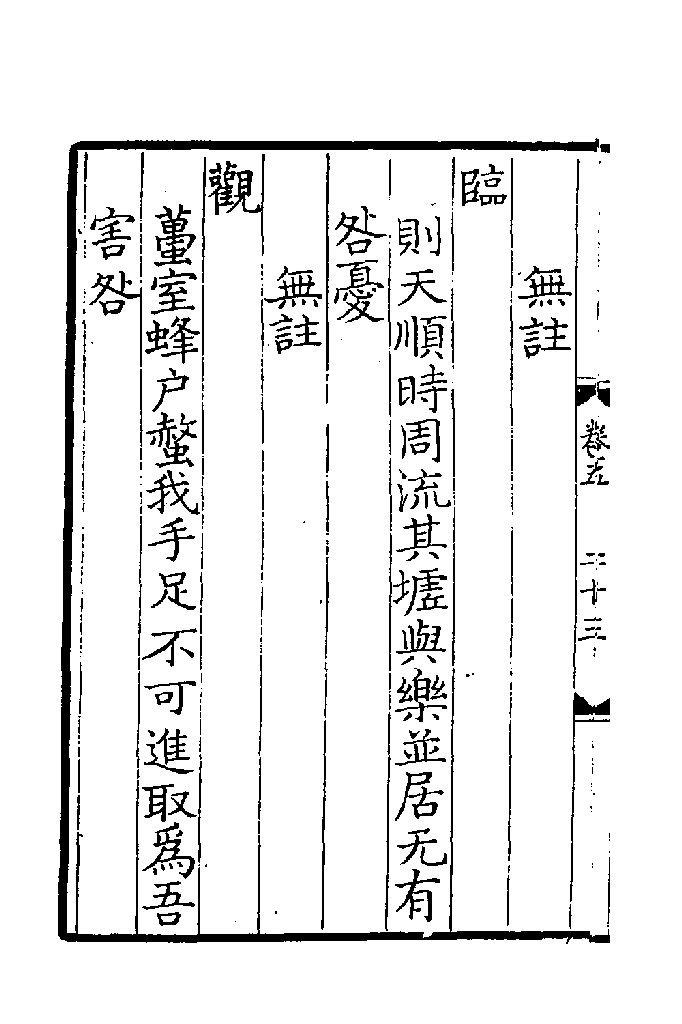 卷五
二十三
無註
臨
則天順時周流其墟與樂並居无有
咎憂
無註
觀
蠆室蜂户螫我手足不可進取爲吾
害咎